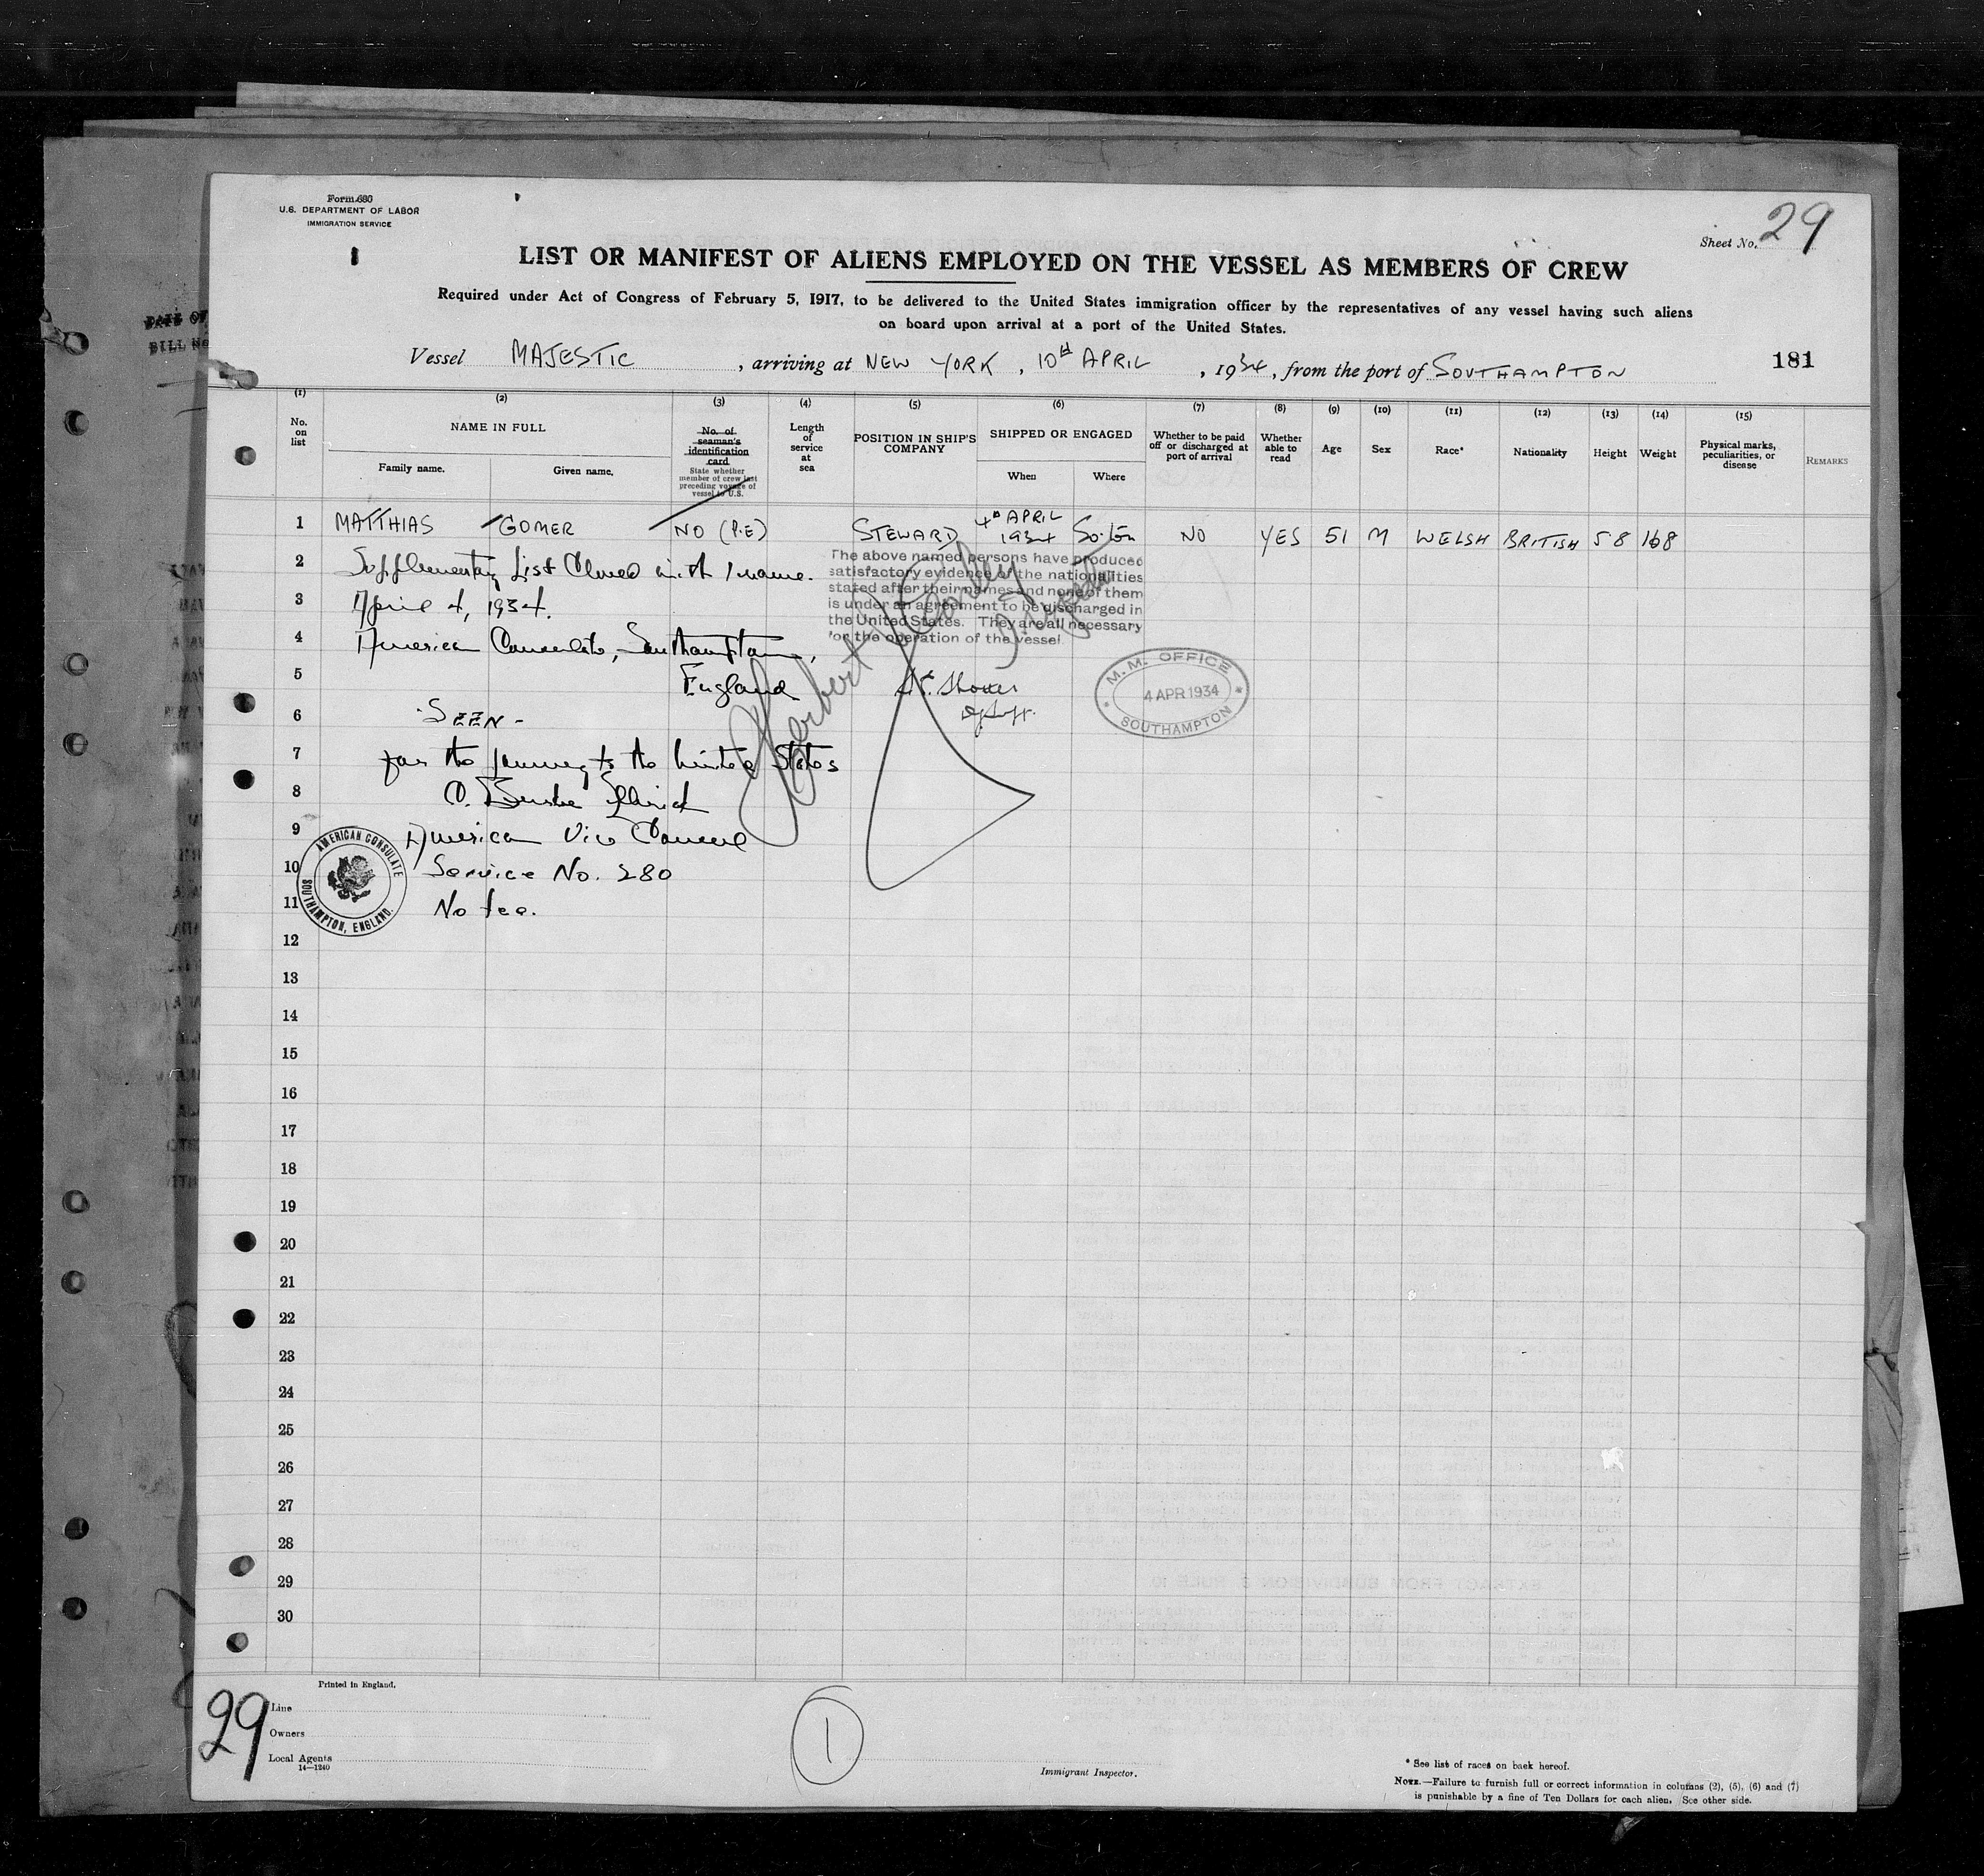 Form 680
U.S. DEPARTMENT OF LABOR
IMMIGRATION SERVICE
1
Sheet No. 29
LIST OR MANIFEST OF ALIENS EMPLOYED ON THE VESSEL AS MEMBERS OF CREW
Required under Act of Congress of February 5, 1917, to be delivered to the United States immigration officer by the representatives of any vessel having such aliens
on board upon arrival at a port of the United States.
Vessel MAJESTIC, arriving at NEW YORK, 10th APRIL, 1934, from the port of SOUTHAMPTON
181
(1) (2) (3) (4) (5) (6) (7) (8) (9) (10) (11) (12) (13) (14) (15)
No. on list
NAME IN FULL
Family name. Given name.
No. of seaman's identification card
State whether member of crew last preceding voyage of vessel to U.S.
Length of service at sea
POSITION IN SHIP'S COMPANY
SHIPPED OR ENGAGED
When Where
Whether to be paid off or discharged at port of arrival
Whether able to read
Age
Sex
Race*
Nationality
Height
Weight
Physical marks, peculiarities, or disease
REMARKS
1 MATTHIAS GOMER NO (P.E) STEWARD 4th APRIL 1934 So'ton NO YES 51 M WELSH BRITISH 5 8 168
The above named persons have produced
satisfactory evidence of the nationalities
stated after their names and none of them
is under an agreement to be discharged in
the United States. They are all necessary
for the operation of the vessel
2 Supplementary List Closed with 1 name.
3 April 4, 1934.
4 American Consulate, Southampton,
5 England
6 SEEN -
M.M. OFFICE
4 APR 1934
SOUTHAMPTON
Herbert
7 for the journey to the United States
8
9 American Vice Consul
10 Service No. 280
11 No fee.
AMERICAN CONSULATE
SOUTHAMPTON, ENGLAND.
12
13
14
15
16
17
18
19
20
21
22
23
24
25
26
27
28
29
30
Printed in England.
29
Line
Owners
Local Agents
14—1240
1
Immigrant Inspector.
* See list of races on back hereof.
NOTE.—Failure to furnish full or correct information in columns (2), (5), (6) and (7)
is punishable by a fine of Ten Dollars for each alien. See other side.